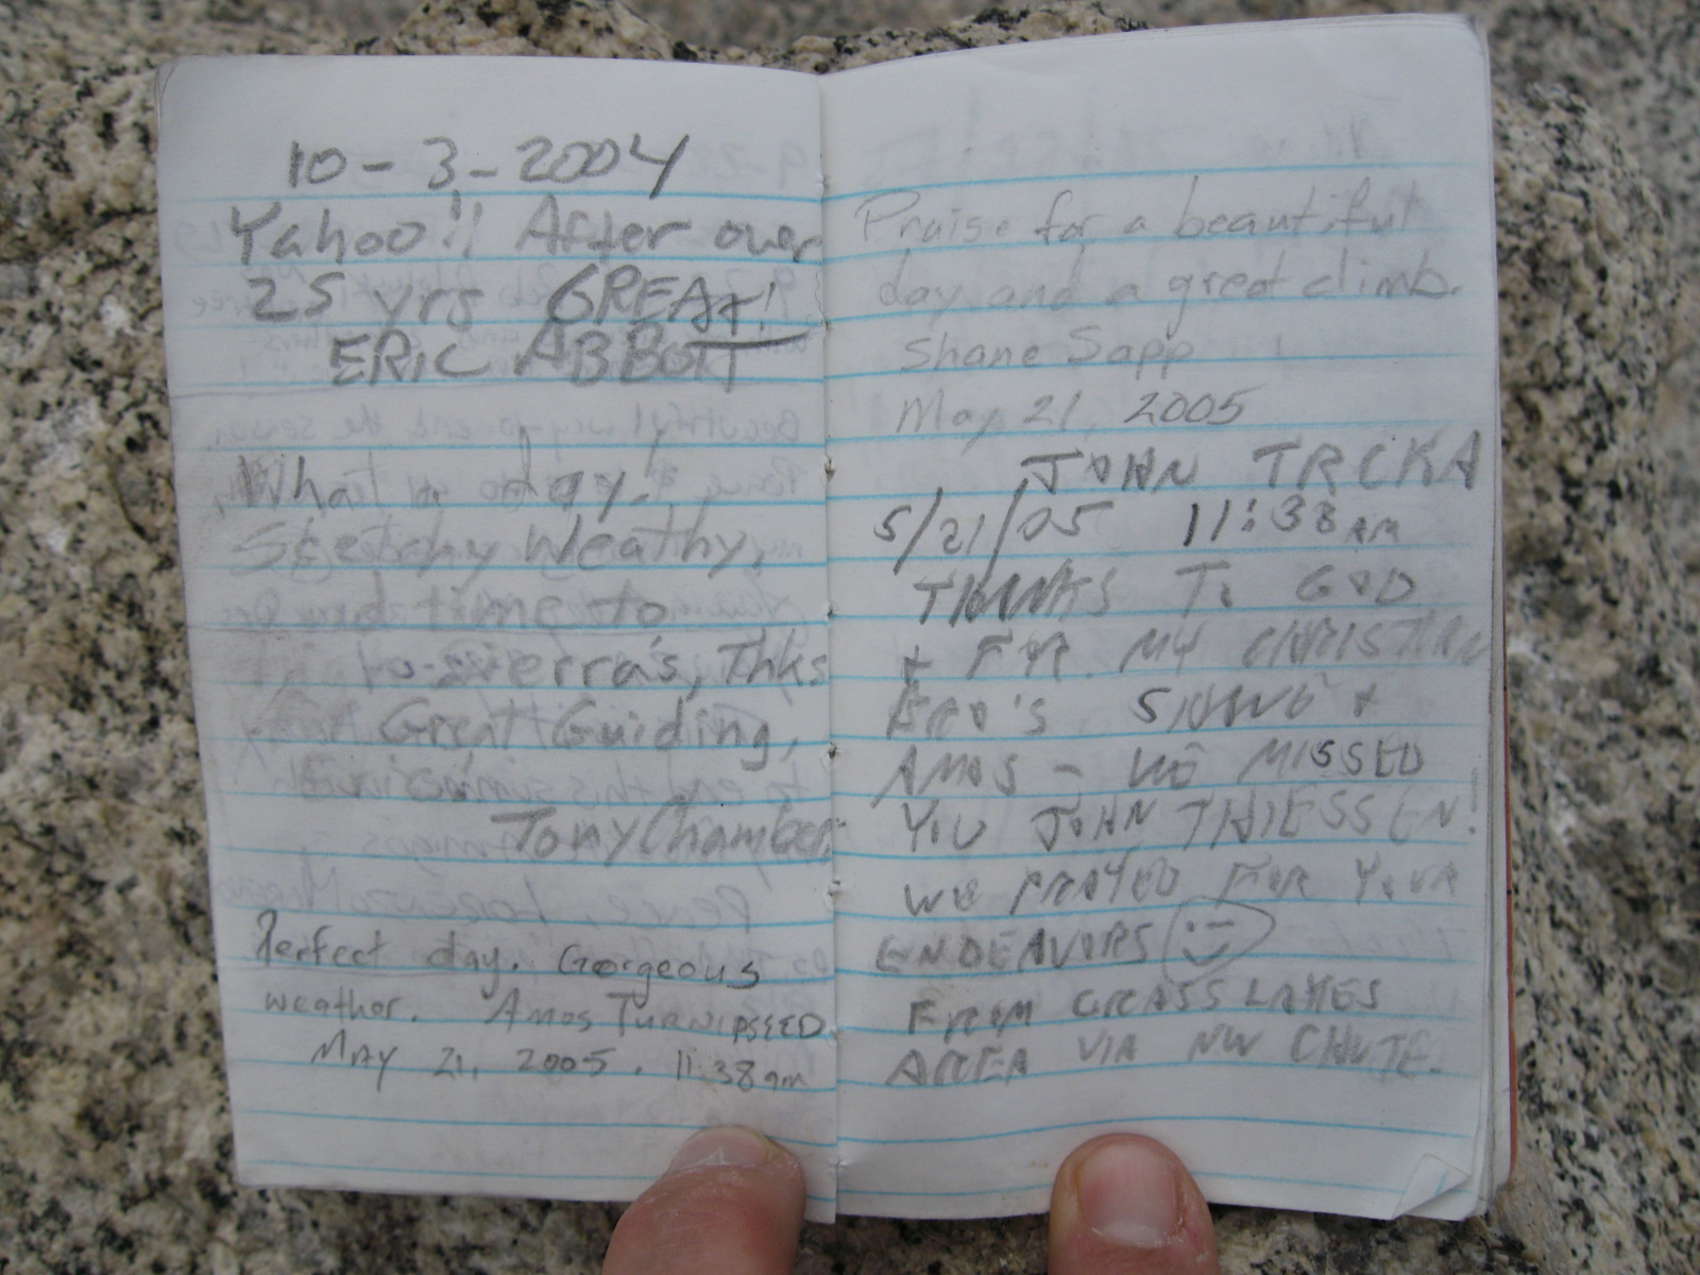 10-3-2004
Yahoo!! After over
25 yrs GREAT!
ERIC ABBOTT
What a day!
Sketchy Weathy,
time to
Sierra's, Thks
Great Guiding,
Tony Chamber
Perfect day. Gorgeous
weather. Amos TURNIPSEED
MAY 21, 2005. 11:38am
Praise for a beautiful
day and a great climb.
Shane Sapp
May 21, 2005
JOHN TRCKA
5/21/05 11:38 AM
THANKS TO GOD
+ FOR MY CHRISTIAN
BRO'S SHANE +
AMOS - WE MISSED
YOU JOHN THIESSEN!
WE PRAYED FOR YOUR
ENDEAVORS
FROM GRASS LAKES
AREA VIA NW CHUTE.